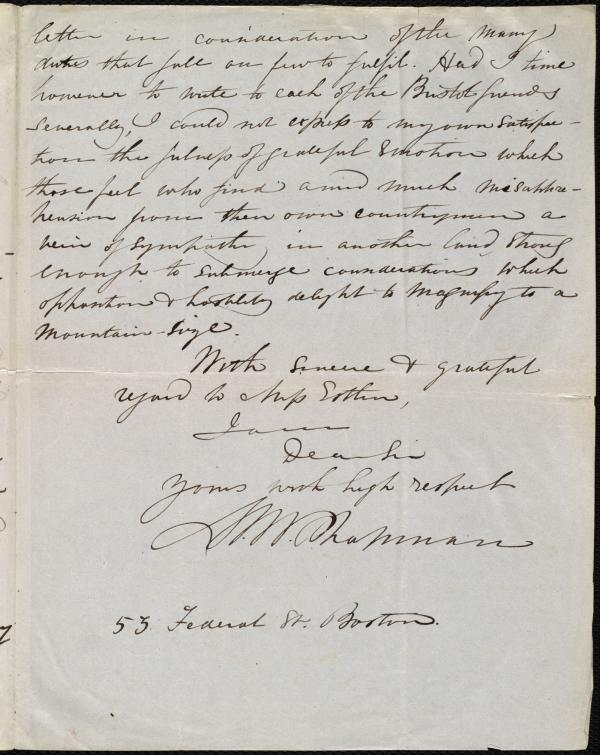 letter in consideration of the many
duties that fall on few to fulfil. Had I time
however to write to each of the Bristol friends
severally, I could not express to my own satisfac-
tion the fulness of grateful emotion which
those feel who find amid much misappre-
hension from their own countrymen a
vein of sympathy in another land, strong
enough to submerge considerations which
opposition & hostility delight to magnify to a
mountain-size.
With sincere & grateful
regard to Miss Estlin,
I am
Dear Sir
Yours with high respect
M. W. Chapman
53 Federal St. Boston.